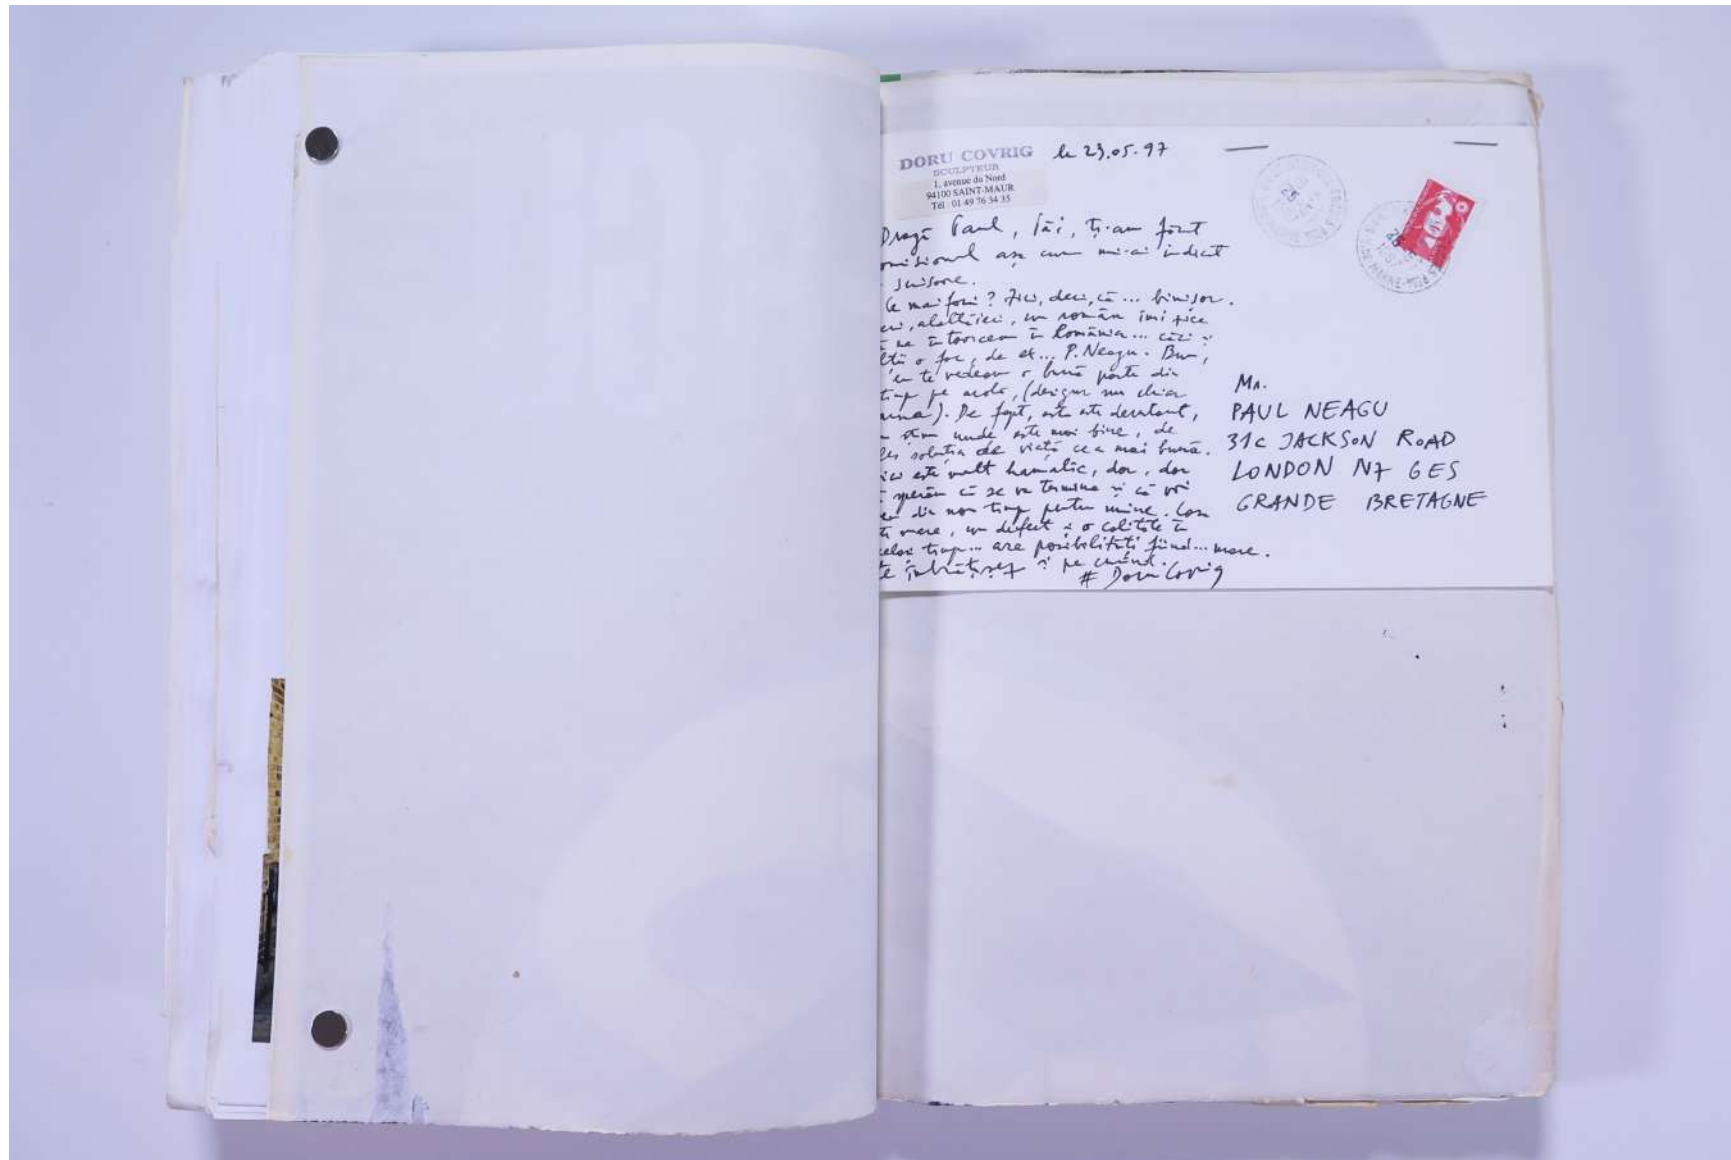 DORU COVRIG
SCULPTEUR
1, avenue du Nord
94100 SAINT-MAUR
Tél : 01 49 76 34 35
le 23.05.97
Dragă Paul, ți-am făcut
așa cum mi-ai indicat
Ce mai faci? Zici, deci, că ... binișor.
alaltăieri, un român îmi zice
ne întoarcem în România ... căci
o fac, de ex... P. Neagu. Bun,
eu te vedeam o bună parte din
timp pe acolo, (desigur nu chiar
). De fapt, este derutant,
unde este mai bine, de
soluția de viață cea mai bună.
este mult hamalîc, dar, dar
sperăm că se va termina și că voi
din nou timp pentru mine. Casa
mare, un defect și o calitate în
timp... are posibilități fiind... mare.
îmbrățișez și pe curând.
# Doru Covrig
Mr.
PAUL NEAGU
31c JACKSON ROAD
LONDON N7 6ES
GRANDE BRETAGNE